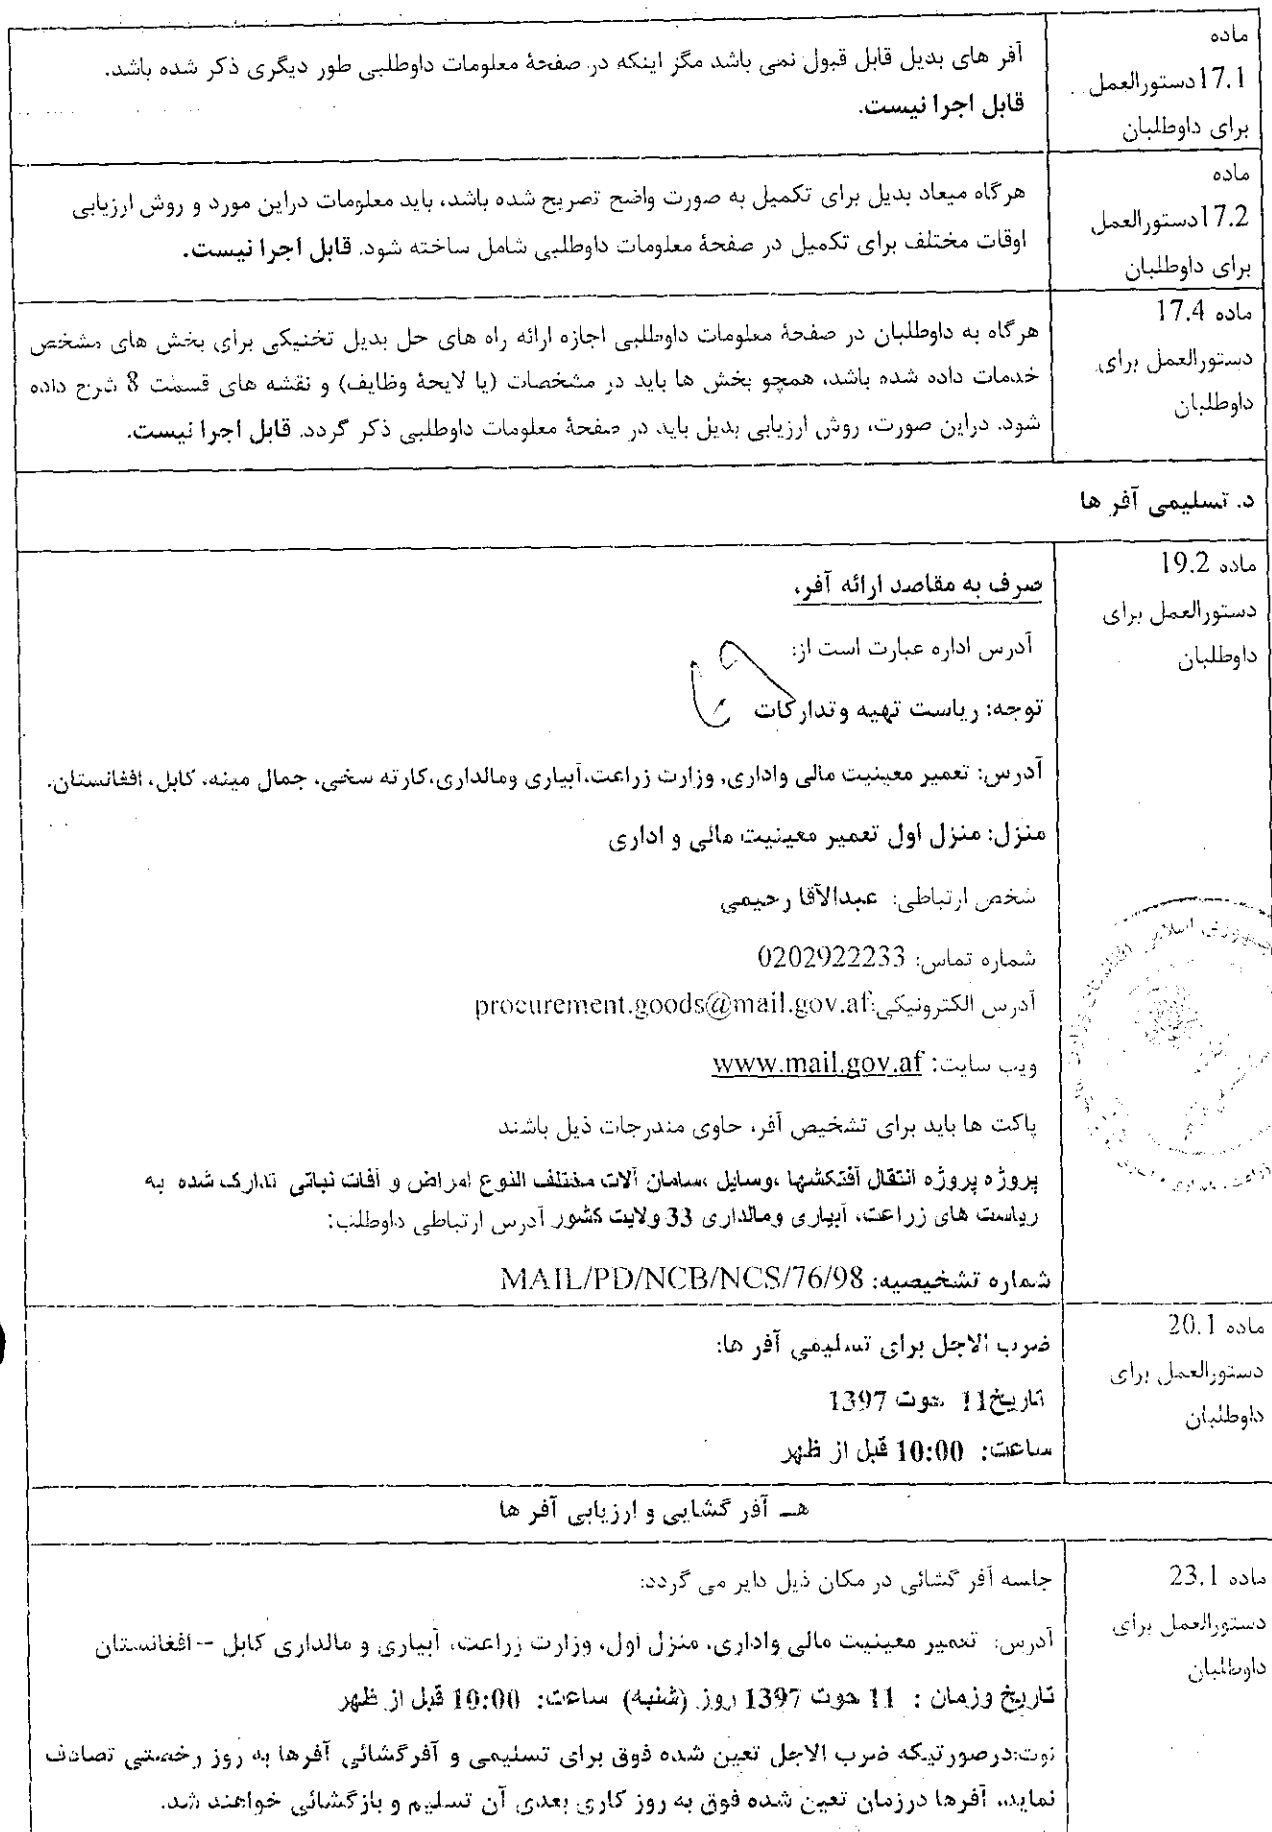 ماده
17.1 دستورالعمل
برای داوطلبان
آفر های بدیل قابل قبول نمی باشد مگر اینکه در صفحۀ معلومات داوطلبی طور دیگری ذکر شده باشد.
قابل اجرا نیست.
ماده
17.2 دستورالعمل
برای داوطلبان
هرگاه میعاد بدیل برای تکمیل به صورت واضح تصریح شده باشد، باید معلومات دراین مورد و روش ارزیابی
اوقات مختلف برای تکمیل در صفحۀ معلومات داوطلبی شامل ساخته شود. قابل اجرا نیست.
ماده 17.4
دستورالعمل برای
داوطلبان
هرگاه به داوطلبان در صفحۀ معلومات داوطلبی اجازه ارائه راه های حل بدیل تخنیکی برای بخش های مشخص
خدمات داده شده باشد، همچو بخش ها باید در مشخصات (یا لایحۀ وظایف) و نقشه های قسمت 8 شرح داده
شود. دراین صورت، روش ارزیابی بدیل باید در صفحۀ معلومات داوطلبی ذکر گردد. قابل اجرا نیست.
د. تسلیمی آفر ها
ماده 19.2
دستورالعمل برای
داوطلبان
صرف به مقاصد ارائه آفر،
آدرس اداره عبارت است از:
توجه: ریاست تهیه وتدارکات
آدرس: تعمیر معینیت مالی واداری، وزارت زراعت،آبیاری ومالداری،کارته سخی، جمال مینه، کابل، افغانستان.
منزل: منزل اول تعمیر معینیت مالی و اداری
شخص ارتباطی: عبدالآقا رحیمی
شماره تماس: 0202922233
آدرس الکترونیکی:procurement.goods@mail.gov.af
ویب سایت: www.mail.gov.af
پاکت ها باید برای تشخیص آفر، حاوی مندرجات ذیل باشند
پروژه پروژه انتقال آفتکشها ،وسایل ،سامان آلات مختلف النوع امراض و آفات نباتی تدارک شده به
ریاست های زراعت، آبیاری ومالداری 33 ولایت کشور آدرس ارتباطی داوطلب:
شماره تشخیصیه: MAIL/PD/NCB/NCS/76/98
ماده 20.1
دستورالعمل برای
داوطلبان
ضرب الاجل برای تسلیمی آفر ها:
تاریخ11 حوت 1397
ساعت: 10:00 قبل از ظهر
هـ آفر گشایی و ارزیابی آفر ها
ماده 23.1
دستورالعمل برای
داوطلبان
جلسه آفر گشائی در مکان ذیل دایر می گردد:
آدرس: تعمیر معینیت مالی واداری، منزل اول، وزارت زراعت، آبیاری و مالداری کابل –افغانستان
تاریخ وزمان : 11 حوت 1397 روز (شنبه) ساعت: 10:00 قبل از ظهر
نوت:درصورتیکه ضرب الاجل تعین شده فوق برای تسلیمی و آفرگشائی آفرها به روز رخصتی تصادف
نماید، آفرها درزمان تعین شده فوق به روز کاری بعدی آن تسلیم و بازگشائی خواهند شد.